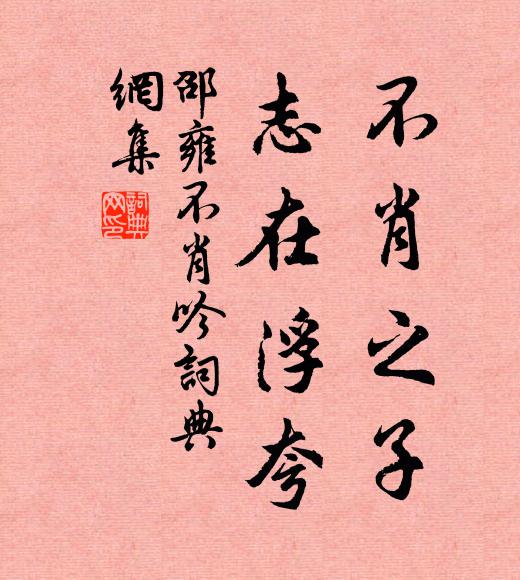 不肖之子
志在浮夸
邵雍不肖吟詞典
網集
詞典網印